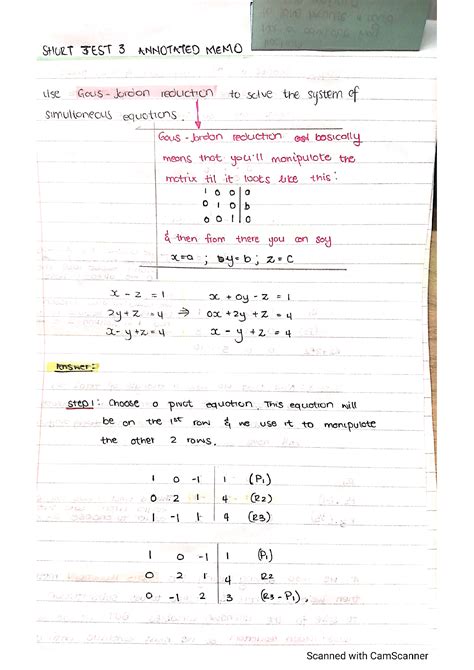 SHORT TEST 3 ANNOTATED MEMO
Use Gaus-Jordan reduction to solve the system of
simultioneous equations.
Gaus-Jordan reduction basically
means that you'll manipulate the
matrix til it looks like this:
1 0 0 | a
0 1 0 | b
0 0 1 | c
& then from there you can say
x=a ; y=b ; z=c
x - z = 1 x + 0y - z = 1
2y + z = 4 ⇒ 0x + 2y + z = 4
x - y + z = 4 x - y + z = 4
Answer:
Step 1: Choose a pivot equation. This equation will
be on the 1st row & we use it to manipulate
the other 2 rows.
1 0 -1 | 1 (P1)
0 2 1 | 4 (R2)
1 -1 1 | 4 (R3)
1 0 -1 | 1 (P1)
0 2 1 | 4 R2
0 -1 2 | 3 (R3 - P1).
Scanned with CamScanner